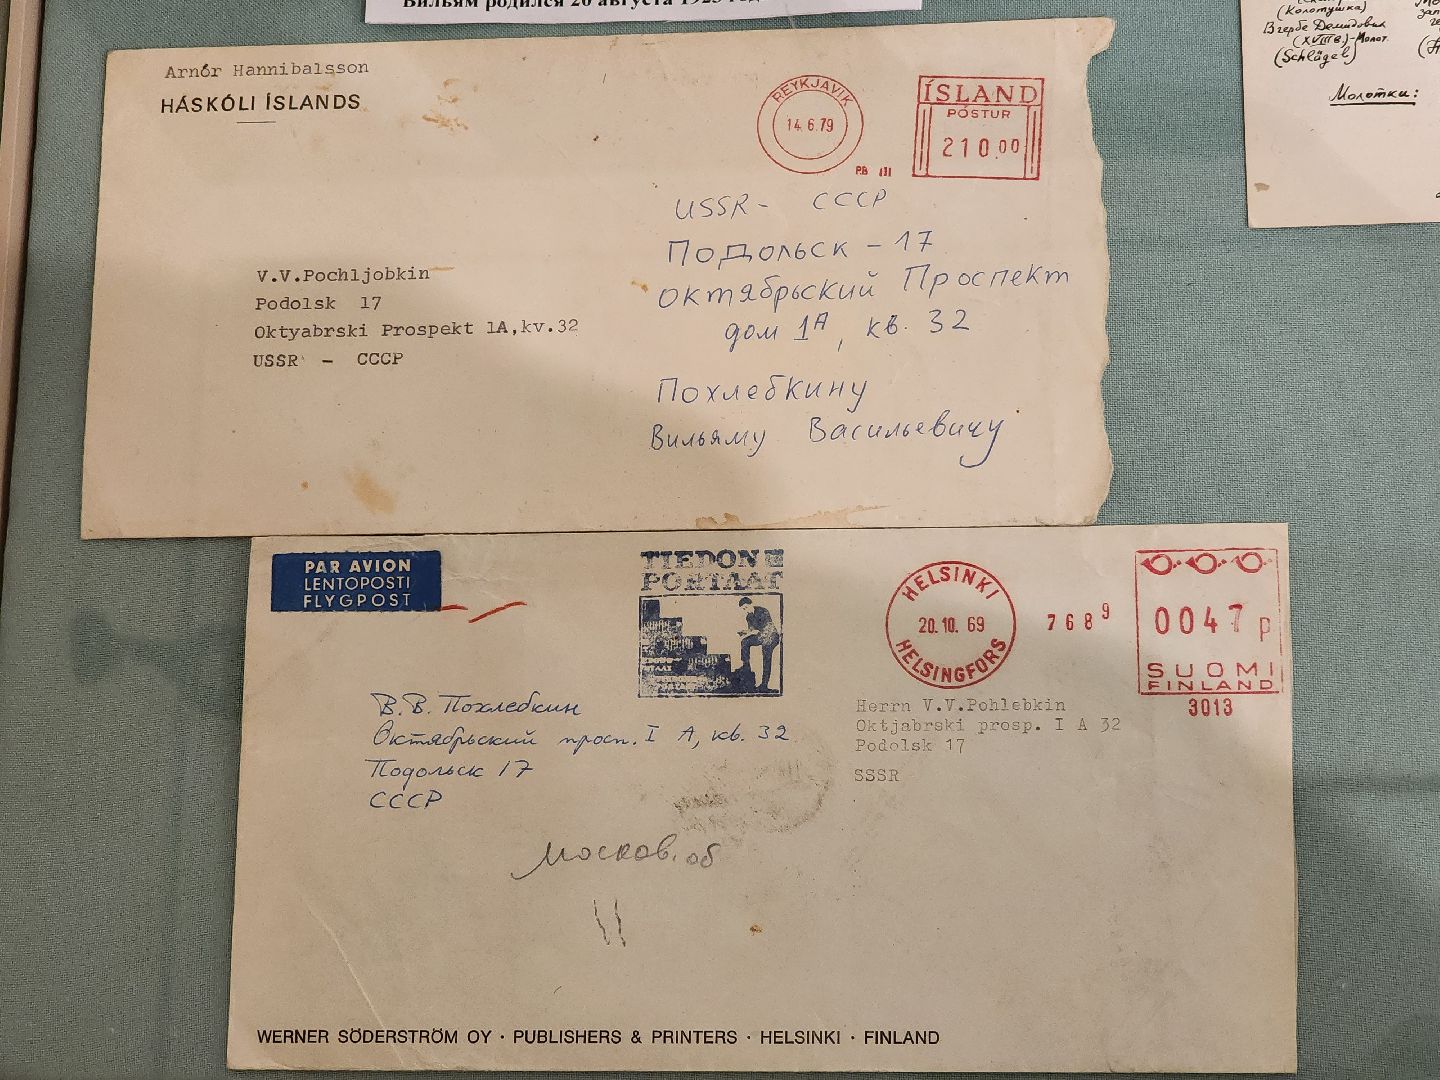 Вильям родился 20 августа 1923
(Колотушка)
В гербе Демидовых
(XVIIIв)-Молот.
(Schlägel)
Молотки:
Arnór Hannibalsson
HÁSKÓLI ÍSLANDS
REYKJAVIK
14.6.79
PB 131
ÍSLAND
PÓSTUR
210.00
V.V.Pochljobkin
Podolsk 17
Oktyabrski Prospekt 1A,kv.32
USSR - CCCP
USSR - СССР
Подольск - 17
Октябрьский Проспект
дом 1А, кв. 32
Похлебкину
Вильяму Васильевичу
PAR AVION
LENTOPOSTI
FLYGPOST
TIEDON
PORTAAT
HELSINKI
20.10.69
HELSINGFORS
7689
0047 p
SUOMI
FINLAND
3013
В.В. Похлебкин
Октябрьский просп. I А, кв. 32
Подольск 17
СССР
Herrn V.V.Pohlebkin
Oktjabrski prosp. I A 32
Podolsk 17
SSSR
Москов. об
WERNER SÖDERSTRÖM OY · PUBLISHERS & PRINTERS · HELSINKI · FINLAND